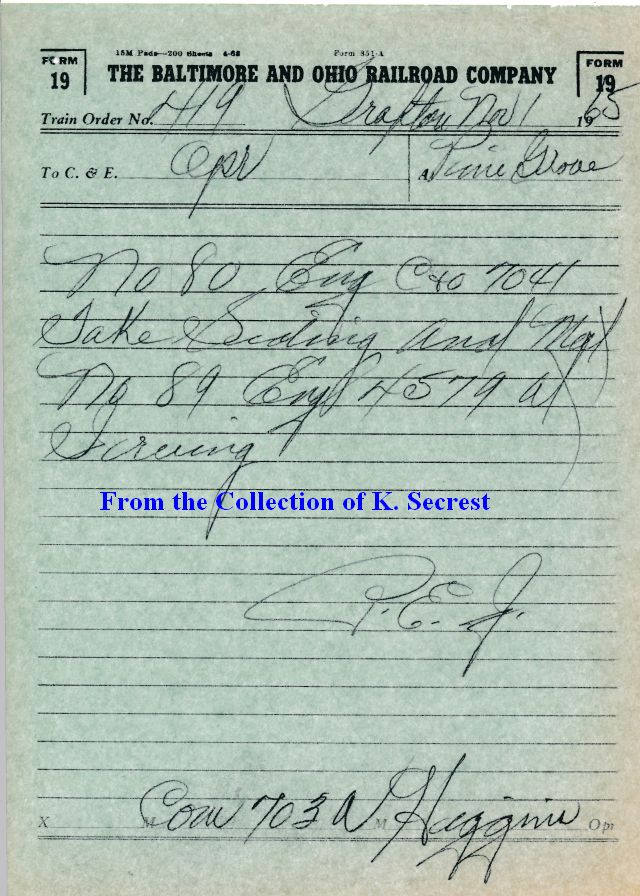 15M Pads—200 Sheets 4-63 Form 851-A
FORM 19 THE BALTIMORE AND OHIO RAILROAD COMPANY FORM 19
Train Order No. 419 Grafton Nov 1 1965
To C. & E. Opr At Pine Grove
No 80 Eng C&O 7041
Take Siding and Meet
No 89 Eng 4579 at
From the Collection of K. Secrest
P.E.J.
X Com 703 A M Haggins Opr